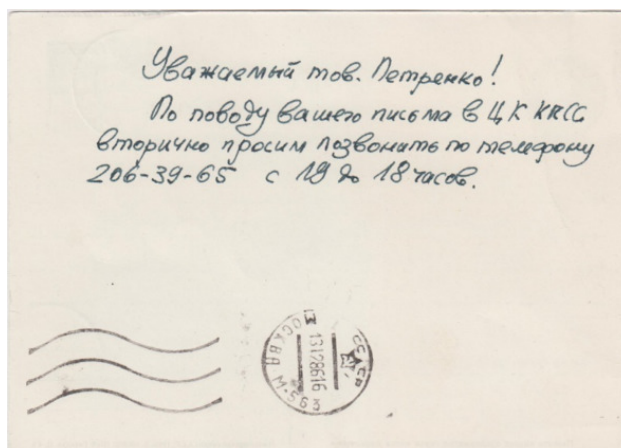 Уважаемый тов. Петренко!
По поводу вашего письма в ЦК КПСС
вторично просим позвонить по телефону
206-39-65 с 19 до 18 часов.
СССР
МОСКВА М-563
13128616